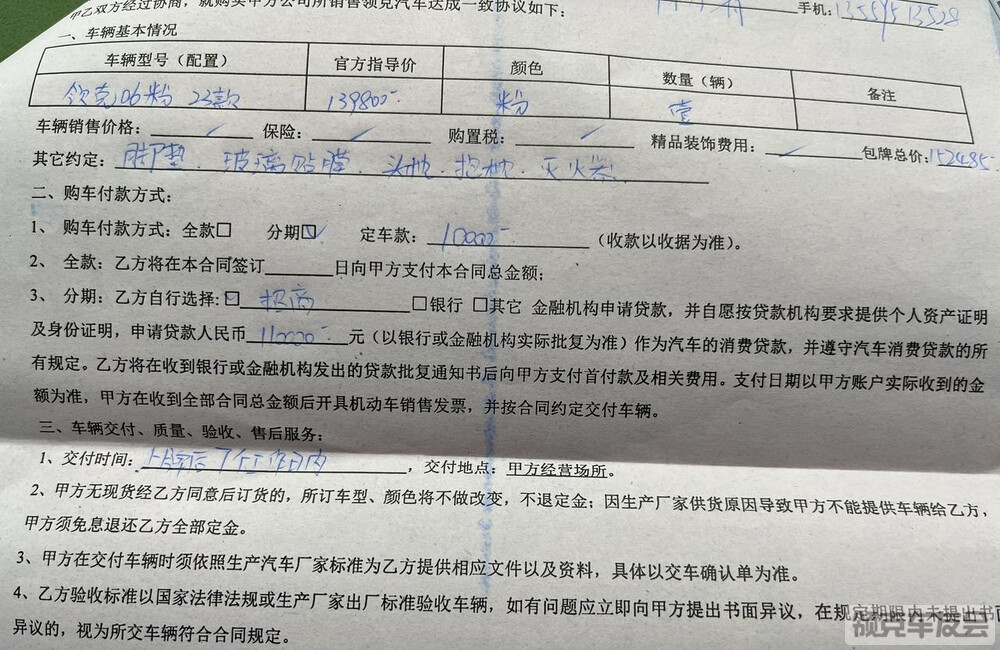 甲乙双方经过协商，就购买甲方公司所销售领克汽车达成一致协议如下：
手机：
一、车辆基本情况
车辆型号（配置） 官方指导价 颜色 数量（辆） 备注
领克06粉 23款 139800 粉 壹
车辆销售价格： 保险： 购置税： 精品装饰费用： 包牌总价：152485
其它约定：脚垫、玻璃贴膜、头枕、抱枕、灭火器
二、购车付款方式：
1、 购车付款方式：全款□ 分期☑ 定车款：10000 （收款以收据为准）。
2、 全款：乙方将在本合同签订______日向甲方支付本合同总金额；
3、 分期：乙方自行选择：☑ 招商 □银行 □其它 金融机构申请贷款，并自愿按贷款机构要求提供个人资产证明
及身份证明，申请贷款人民币110000元（以银行或金融机构实际批复为准）作为汽车的消费贷款，并遵守汽车消费贷款的所
有规定。乙方将在收到银行或金融机构发出的贷款批复通知书后向甲方支付首付款及相关费用。支付日期以甲方账户实际收到的金
额为准，甲方在收到全部合同总金额后开具机动车销售发票，并按合同约定交付车辆。
三、车辆交付、质量、验收、售后服务：
1、交付时间： 7个工作日内，交付地点：甲方经营场所。
2、甲方无现货经乙方同意后订货的，所订车型、颜色将不做改变，不退定金；因生产厂家供货原因导致甲方不能提供车辆给乙方，
甲方须免息退还乙方全部定金。
3、甲方在交付车辆时须依照生产汽车厂家标准为乙方提供相应文件以及资料，具体以交车确认单为准。
4、乙方验收标准以国家法律法规或生产厂家出厂标准验收车辆，如有问题应立即向甲方提出书面异议，在规定期限内未提出书面
异议的，视为所交车辆符合合同规定。